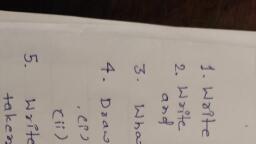 1. Write
2. Write
and
3. Wha
4. Draw
(i)
(ii)
5. Write
taken